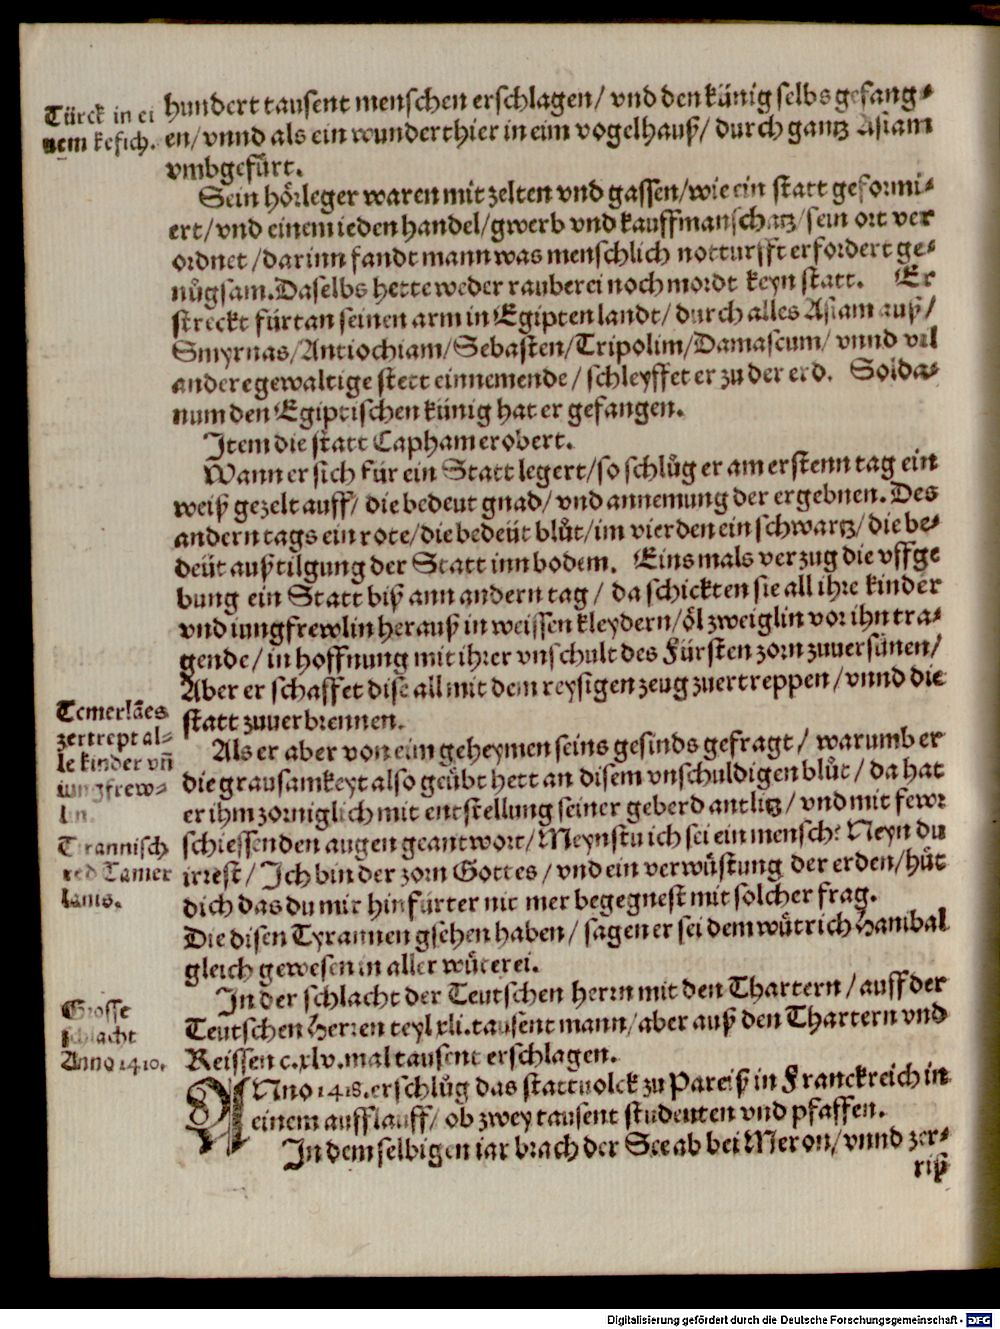 Türck in ei
nem kefich.
hundert tausent menschen erschlagen/ vnd den künig selbs gefang⸗
en/ vnnd als ein wunderthier in eim vogelhauß/ durch gantz Asiam
vmbgefürt.
Sein hörleger waren mit zelten vnd gassen/ wie ein statt geformi⸗
ert/ vnd einem ieden handel/ gwerb vnd kauffmanschatz/ sein ort ver
ordnet/ darinn fandt mann was menschlich notturfft erfordert ge⸗
nůgsam. Daselbs hette weder rauberei noch mordt keyn statt. Er
streckt fürtan seinen arm in Egipten landt/ durch alles Asiam auß/
Smyrnas/ Antiochiam/ Sebasten/ Tripolim/ Damascum/ vnnd vil
andere gewaltige stett einnemende/ schleyffet er zu der erd. Solda⸗
num den Egiptischen künig hat er gefangen.
Item die statt Capham erobert.
Wann er sich für ein Statt legert/ so schlůg er am erstenn tag ein
weiß gezelt auff/ die bedeut gnad/ vnd annemung der ergebnen. Des
andern tags ein rote/ die bedeüt blůt/ im vierden ein schwartz/ die be⸗
deüt außtilgung der Statt inn bodem. Eins mals verzug die vffge
bung ein Statt biß ann andern tag/ da schickten sie all ihre kinder
vnd iungfrewlin herauß in weissen kleydern/ öl zweiglin vor ihn tra⸗
gende/ in hoffnung mit ihrer vnschult des Fürsten zorn zuuersünen/
Aber er schaffet dise all mit dem reysigen zeug zuertreppen/ vnnd die
statt zuuerbrennen.
Temerlães
zertrept al⸗
le kinder vñ
iungfrew⸗
lin.
Als er aber von eim geheymen seins gesinds gefragt/ warumb er
die grausamkeyt also geübt hett an disem vnschuldigen blůt/ da hat
er ihm zorniglich mit entstellung seiner geberd antlitz/ vnd mit fewr
schiessenden augen geantwort/ Meynstu ich sei ein mensch? Neyn du
irrest/ Ich bin der zorn Gottes/ vnd ein verwüstung der erden/ hüt
dich das du mir hinfürter nit mer begegnest mit solcher frag.
Tyrannisch
red Tamer
lanis.
Die disen Tyrannen gsehen haben/ sagen er sei dem wütrich Hanibal
gleich gewesen in aller wüterei.
In der schlacht der Teutschen herrn mit den Thartern/ auff der
Teutschen Herren teyl xli. tausent mann/ aber auß den Thartern vnd
Reissen c.xlv. mal tausent erschlagen.
Grosse
schlacht
Anno 1410.
ANno 1418. erschlůg das stattuolck zu Pareiß in Franckreich in
einem aufflauff/ ob zwey tausent studenten vnd pfaffen.
In dem selbigen iar brach der See ab bei Meron/ vnnd zer⸗
riß
Digitalisierung gefördert durch die Deutsche Forschungsgemeinschaft - DFG